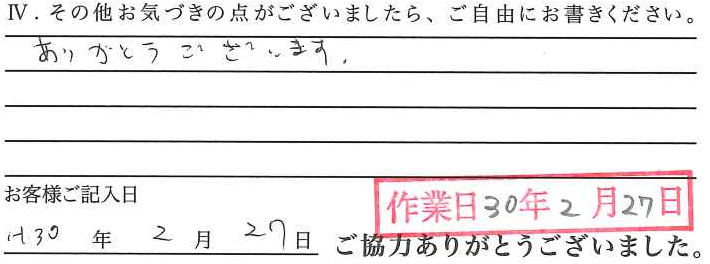 Ⅳ．その他お気づきの点がございましたら、ご自由にお書きください。
ありがとうございます。
お客様ご記入日
H30年2月27日
作業日30年2月27日
ご協力ありがとうございました。